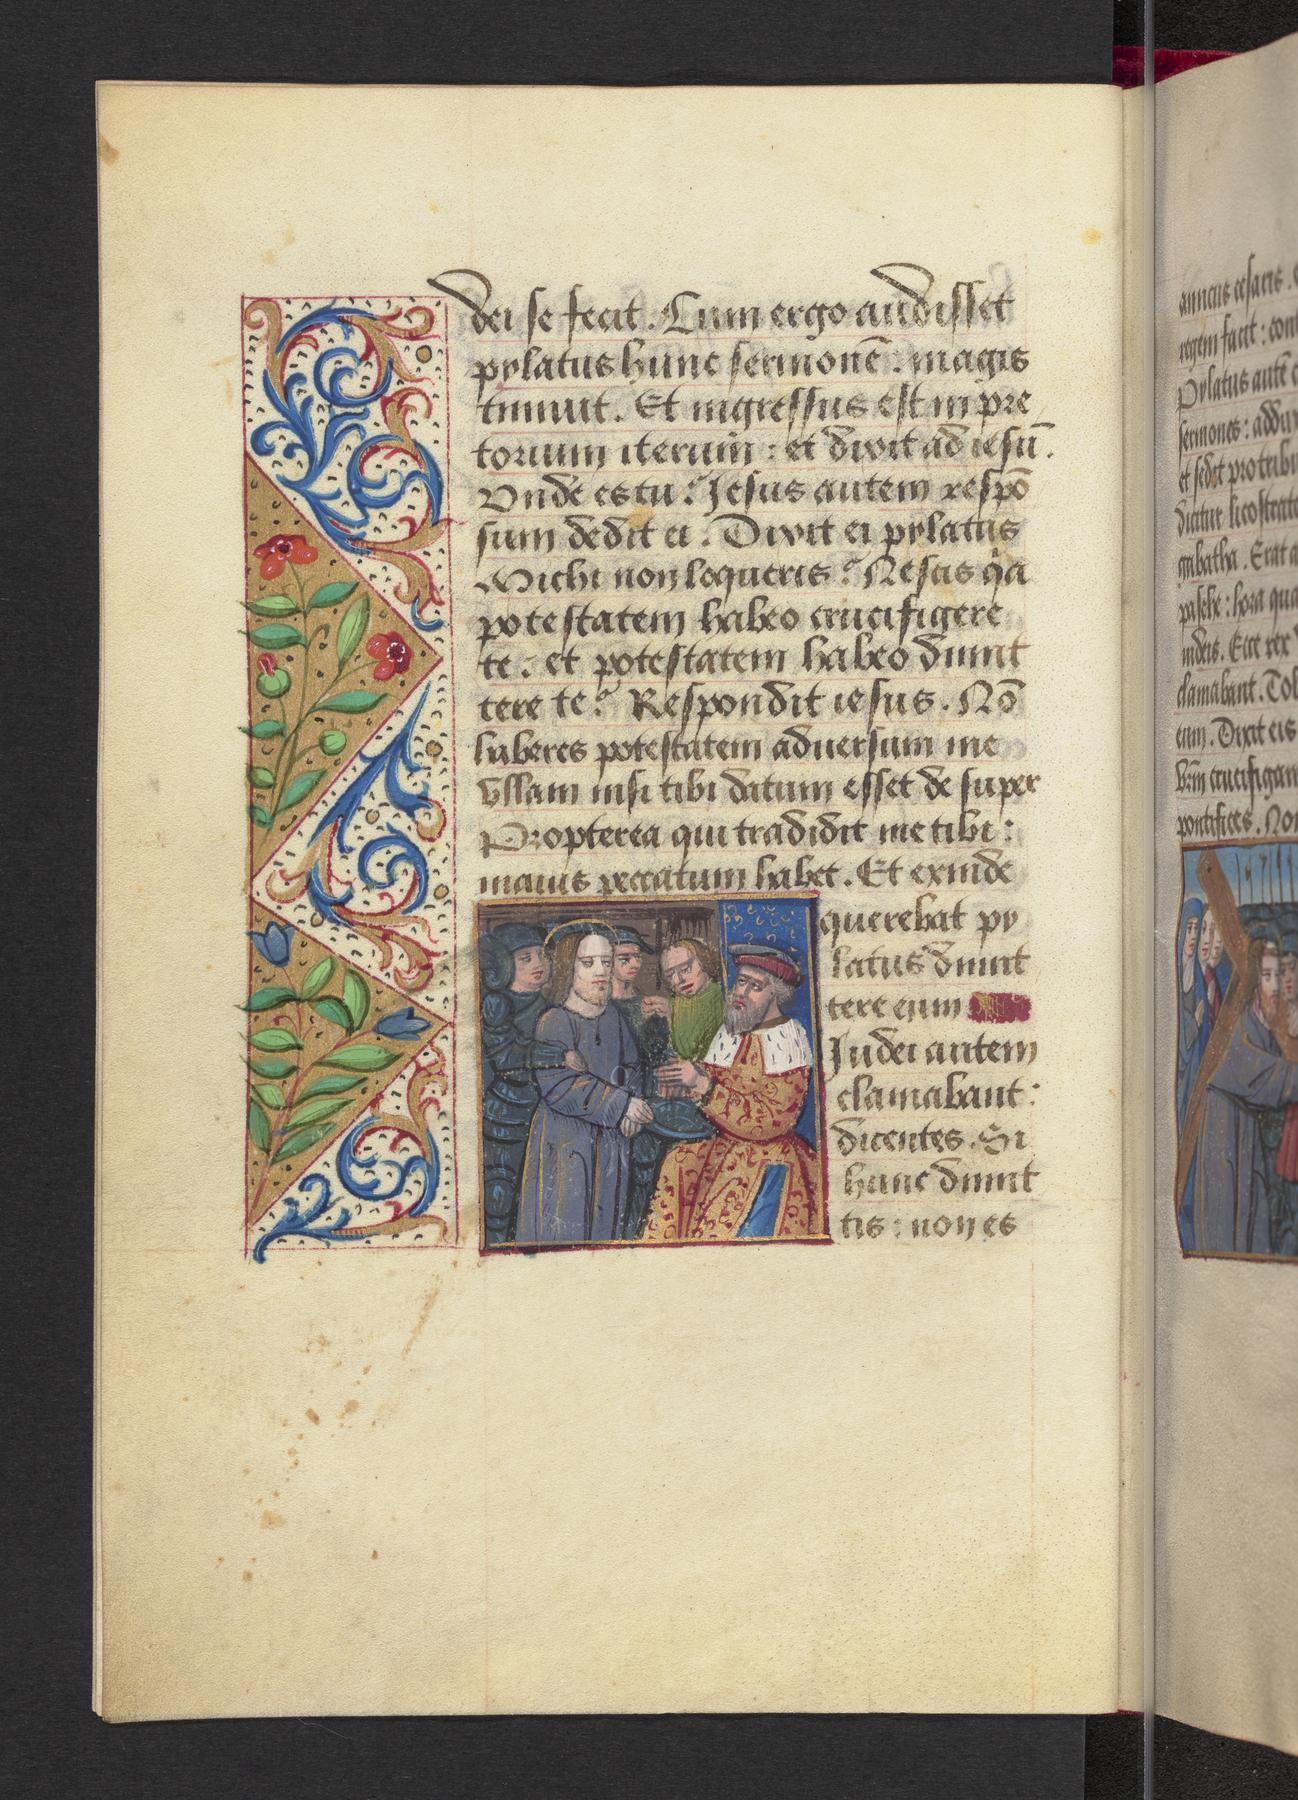 dei se fecit. Cum ergo audisset
pylatus hunc sermonē: magis
timuit. Et ingressus est in pre
torium iterum: et dixit ad iesū.
Vnde es tu? Jesus autem respō
sum dedit ei. Dixit ei pylatus
Michi non loqueris? Nescis qa
potestatem habeo crucifigere
te: et potestatem habeo dimit
tere te? Respondit iesus. Nō
haberes potestatem aduersum me
vllam nisi tibi datum esset de super
Propterea qui tradidit me tibi:
maius peccatum habet. Et exinde
querebat py
latus dimit
tere eum
Judei autem
clamabant:
dicentes. Si
hunc dimit
tis: non es
amicus cesaris.
regem facit:
Pylatus autē
sermones:
et sedit pro
dicitur
gabatha. Erat
pasche: hora
iudeis. Ecce rex
clamabant.
eum. Dixit eis
vrm crucifigam
pontifices.